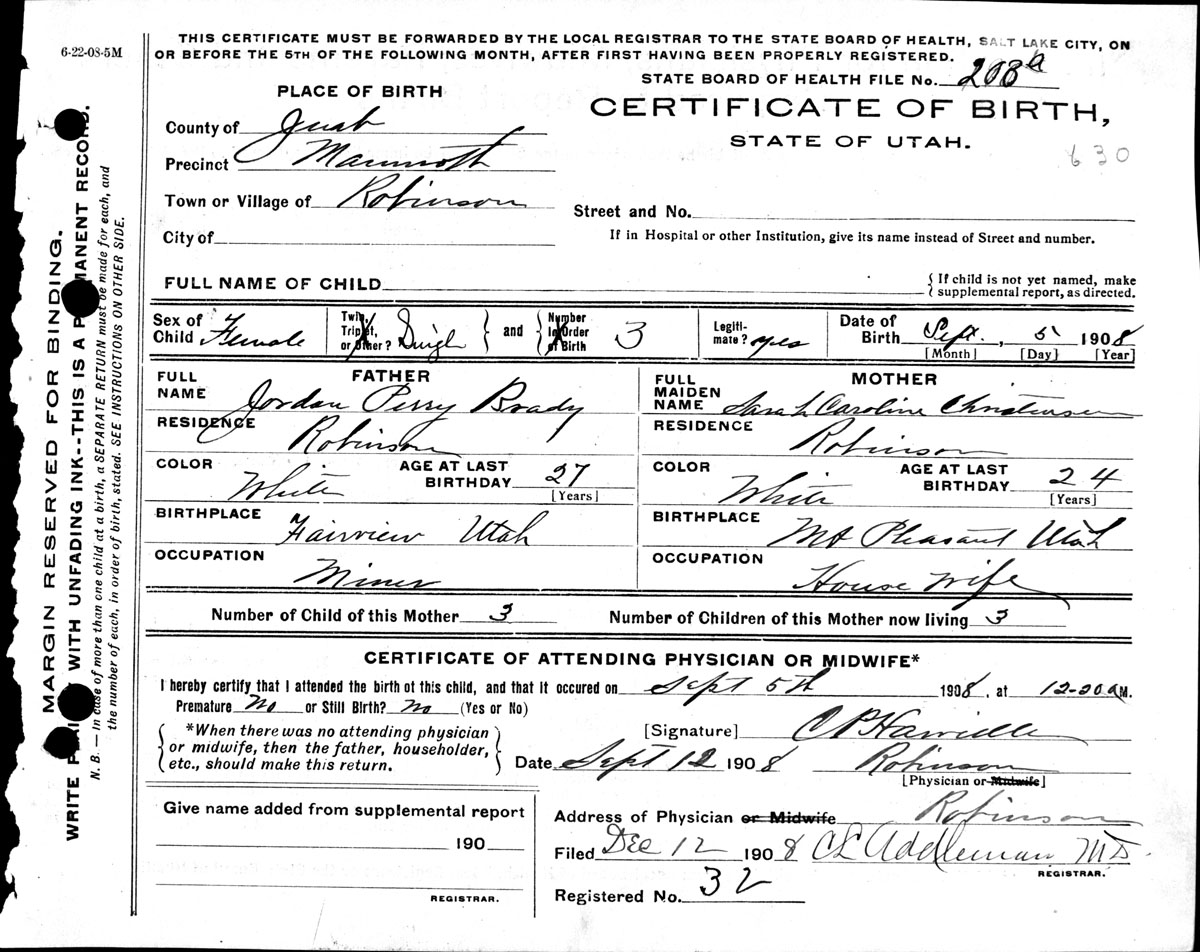 6-22-08-5M
THIS CERTIFICATE MUST BE FORWARDED BY THE LOCAL REGISTRAR TO THE STATE BOARD OF HEALTH, SALT LAKE CITY, ON
OR BEFORE THE 5TH OF THE FOLLOWING MONTH, AFTER FIRST HAVING BEEN PROPERLY REGISTERED.
STATE BOARD OF HEALTH FILE No. 208a
PLACE OF BIRTH
CERTIFICATE OF BIRTH,
STATE OF UTAH.
630
County of Juab
Precinct Mammoth
Town or Village of Robinson
Street and No.
City of
If in Hospital or other Institution, give its name instead of Street and number.
FULL NAME OF CHILD
{ If child is not yet named, make
{ supplemental report, as directed.
Sex of Child Female
Twin, Triplet, or Other? Single } and { Number In Order of Birth 3
Legitimate? yes
Date of Birth Sept. 5 1908
[Month] [Day] [Year]
FATHER
FULL NAME Jordan Perry Brady
RESIDENCE Robinson
COLOR White AGE AT LAST BIRTHDAY 27
[Years]
BIRTHPLACE Fairview Utah
OCCUPATION Miner
MOTHER
FULL MAIDEN NAME Sarah Caroline Christensen
RESIDENCE Robinson
COLOR White AGE AT LAST BIRTHDAY 24
[Years]
BIRTHPLACE Mt Pleasant Utah
OCCUPATION House wife
Number of Child of this Mother 3 Number of Children of this Mother now living 3
CERTIFICATE OF ATTENDING PHYSICIAN OR MIDWIFE*
I hereby certify that I attended the birth of this child, and that it occured on Sept 5th 1908, at 12-20 a M.
Premature No or Still Birth? No (Yes or No)
*When there was no attending physician
or midwife, then the father, householder,
etc., should make this return.
[Signature]
Date Sept 12 1908 Robinson
[Physician or Midwife]
Give name added from supplemental report
190
REGISTRAR.
Address of Physician or Midwife Robinson
Filed Dec 12 1908 CE Addleman MD.
REGISTRAR.
Registered No. 32
MARGIN RESERVED FOR BINDING.
WRITE WITH UNFADING INK--THIS IS A PERMANENT RECORD.
N. B. — In case of more than one child at a birth, a SEPARATE RETURN must be made for each, and
the number of each, in order of birth, stated. SEE INSTRUCTIONS ON OTHER SIDE.